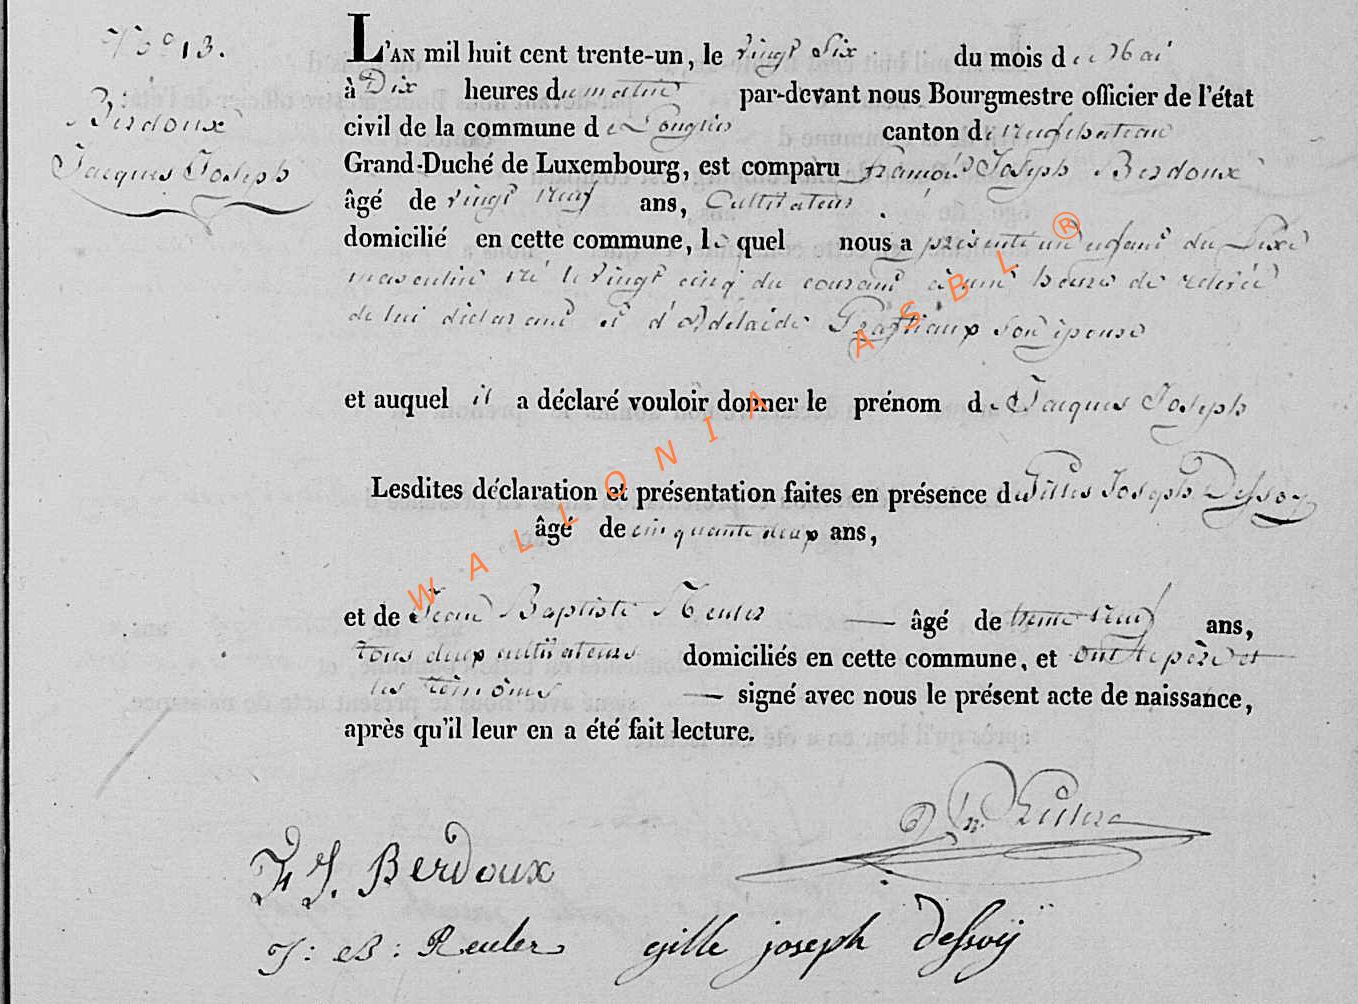 N° 13.
Berdoux
Jacques Joseph
L'AN mil huit cent trente-un, le vingt six du mois de Mai
à Dix heures du matin par-devant nous Bourgmestre officier de l'état
civil de la commune de Longlier canton de Neufchateau
Grand-Duché de Luxembourg, est comparu François Joseph Berdoux
âgé de vingt neuf ans, Cultivateur
domicilié en cette commune, lequel nous a présenté un enfant du sexe
masculin né le vingt cinq du courant à une heure de relevée
de lui déclarant et d'Adélaide Gratiaux son épouse
et auquel il a déclaré vouloir donner le prénom de Jacques Joseph
Lesdites déclaration et présentation faites en présence de Gilles Joseph Dessoy
âgé de cinquante deux ans,
et de Jean Baptiste Reuler — âgé de trente neuf ans,
tous deux cultivateurs domiciliés en cette commune, et ont le père et
les témoins — signé avec nous le présent acte de naissance,
après qu'il leur en a été fait lecture.
F J. Berdoux
J: B: Reuler gille joseph dessoÿ
WALLONIA ASBL ®